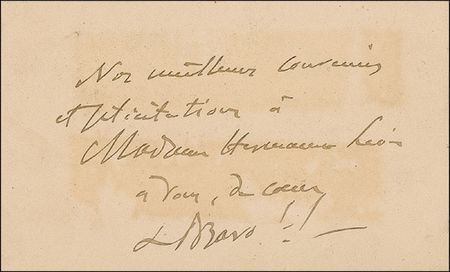 Nos meilleurs souvenirs
et félicitations à
Madame Hermann Léon
à vous, de cœur
Bravo !!